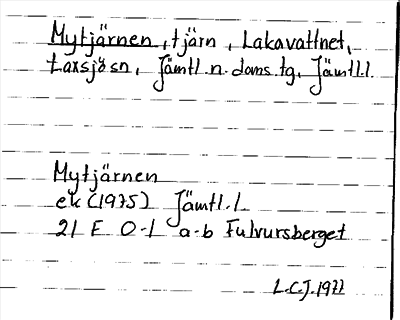 Mytjärnen, tjärn, Lakavattnet,
Laxsjö sn, Jämtl. n. doms. tg, Jämtl. l.
Mytjärnen
ek (1975) Jämtl. l.
21 E 0-1 a-b Fulvursberget
L.C.J. 1977